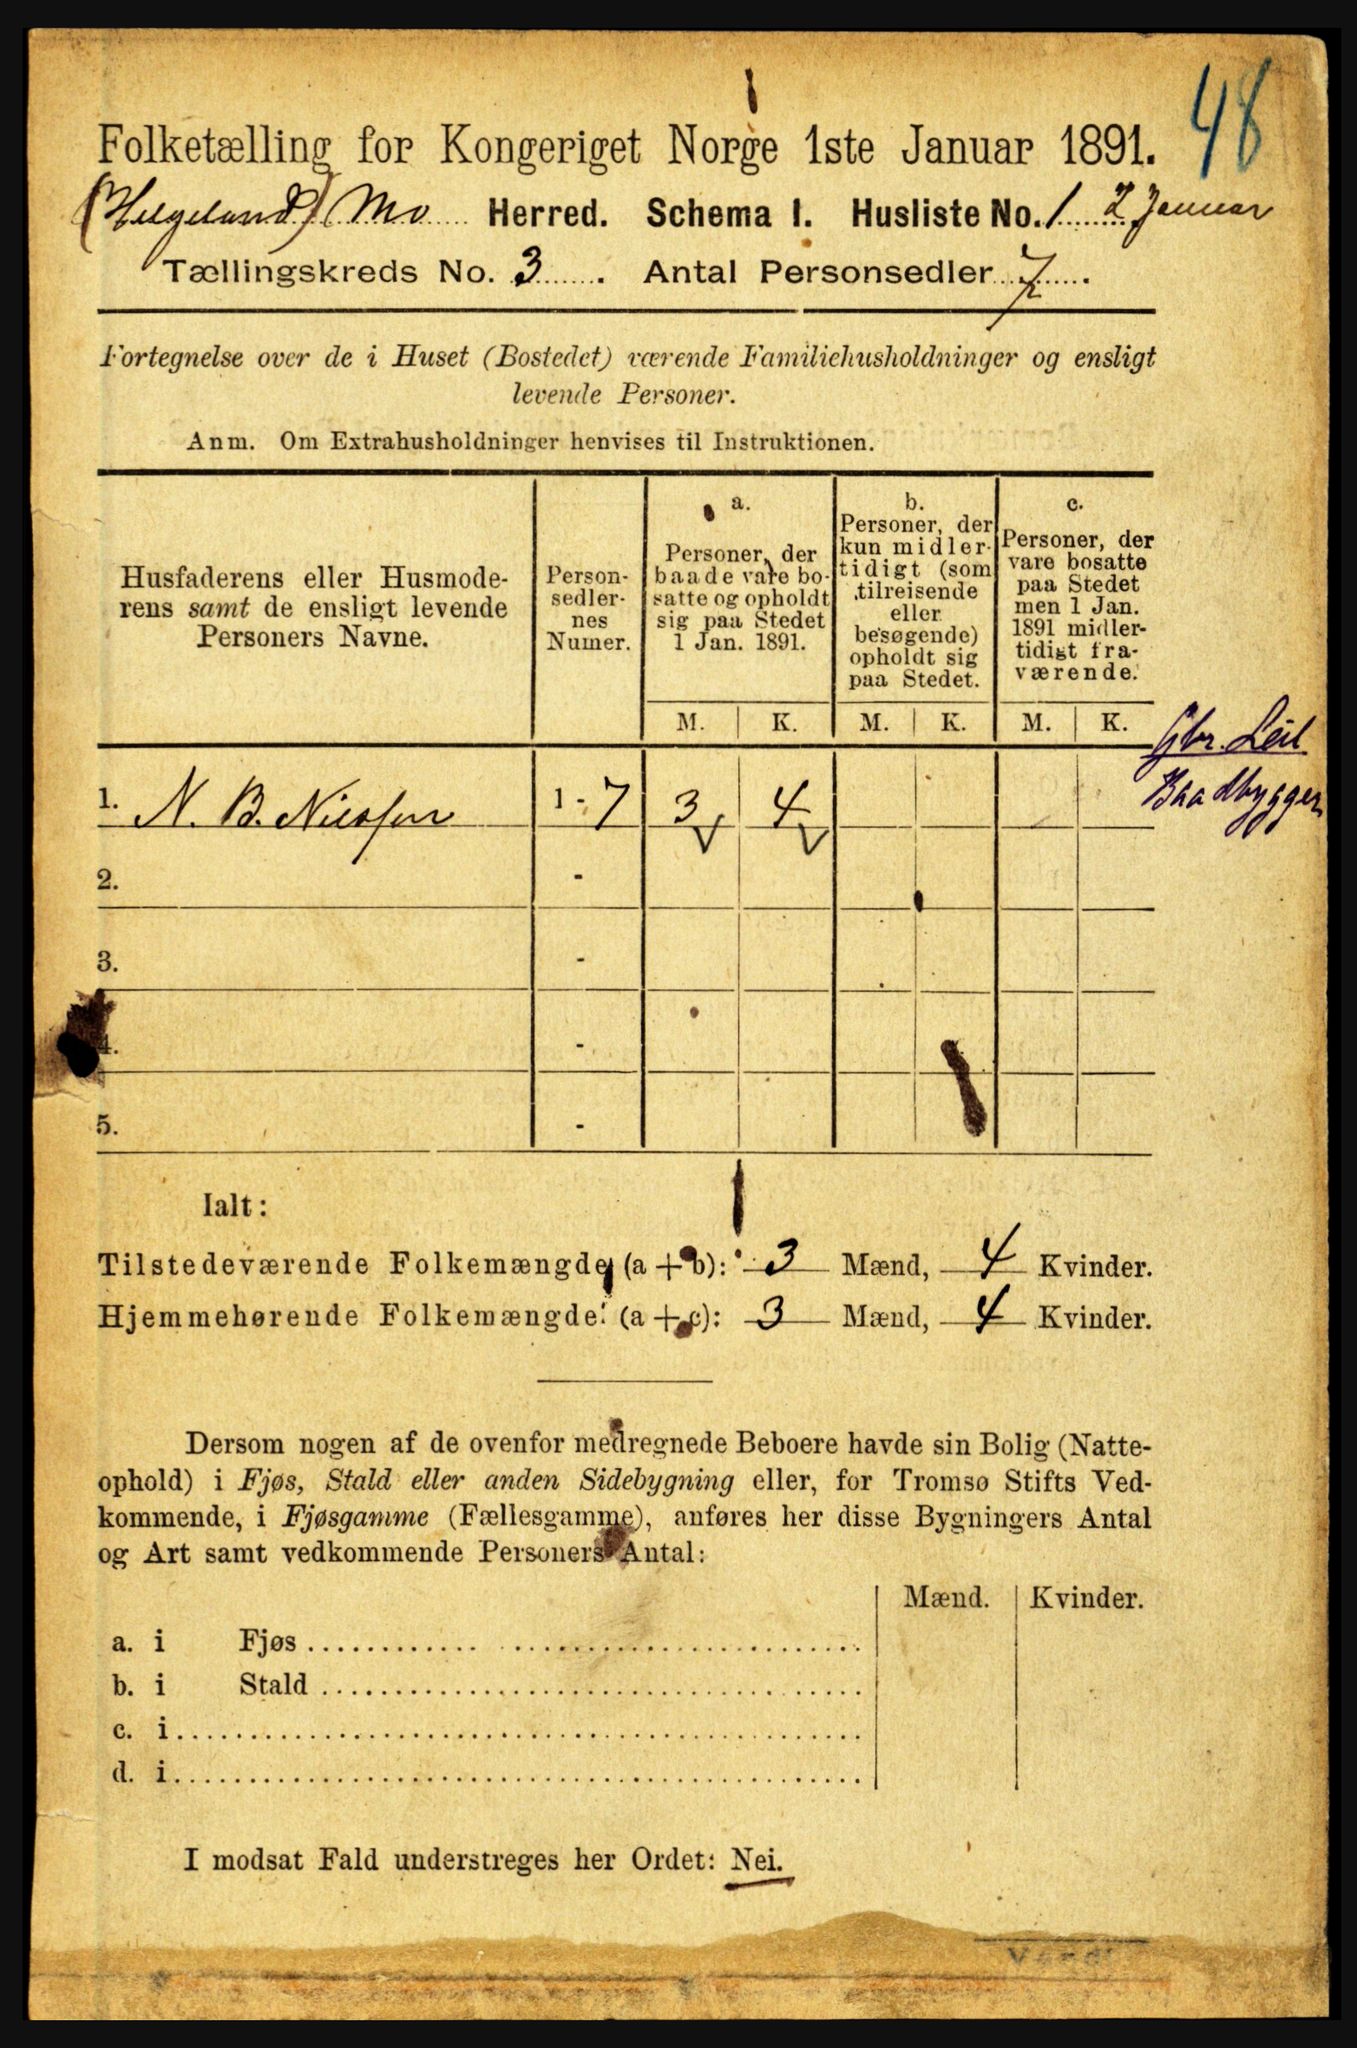 48
Folketælling for Kongeriget Norge 1ste Januar 1891.
(Helgeland) Mo Herred. Schema I. Husliste No. 1 2 Januar
Tællingskreds No. 3. Antal Personsedler 7.
Fortegnelse over de i Huset (Bostedet) værende Familiehusholdninger og ensligt
levende Personer.
Anm. Om Extrahusholdninger henvises til Instruktionen.
Husfaderens eller Husmode-
rens samt de ensligt levende
Personers Navne.
Person-
sedler-
nes
Numer.
a.
Personer, der
baade vare bo-
satte og opholdt
sig paa Stedet
1 Jan. 1891.
b.
Personer, der
kun midler-
tidigt (som
tilreisende
eller
besøgende)
opholdt sig
paa Stedet.
c.
Personer, der
vare bosatte
paa Stedet
men 1 Jan.
1891 midler-
tidigt fra-
værende.
M. K. M. K. M. K.
Gbr. Leil
Baadbygger
1. N. B. Nilssen 1 - 7 3 4
2. -
3. -
4. -
5. -
Ialt:
Tilstedeværende Folkemængde (a + b): 3 Mænd, 4 Kvinder.
Hjemmehørende Folkemængde: (a + c): 3 Mænd, 4 Kvinder.
Dersom nogen af de ovenfor medregnede Beboere havde sin Bolig (Natte-
ophold) i Fjøs, Stald eller anden Sidebygning eller, for Tromsø Stifts Ved-
kommende, i Fjøsgamme (Fællesgamme), anføres her disse Bygningers Antal
og Art samt vedkommende Personers Antal:
Mænd. Kvinder.
a. i Fjøs
b. i Stald
c. i
d. i
I modsat Fald understreges her Ordet: Nei.